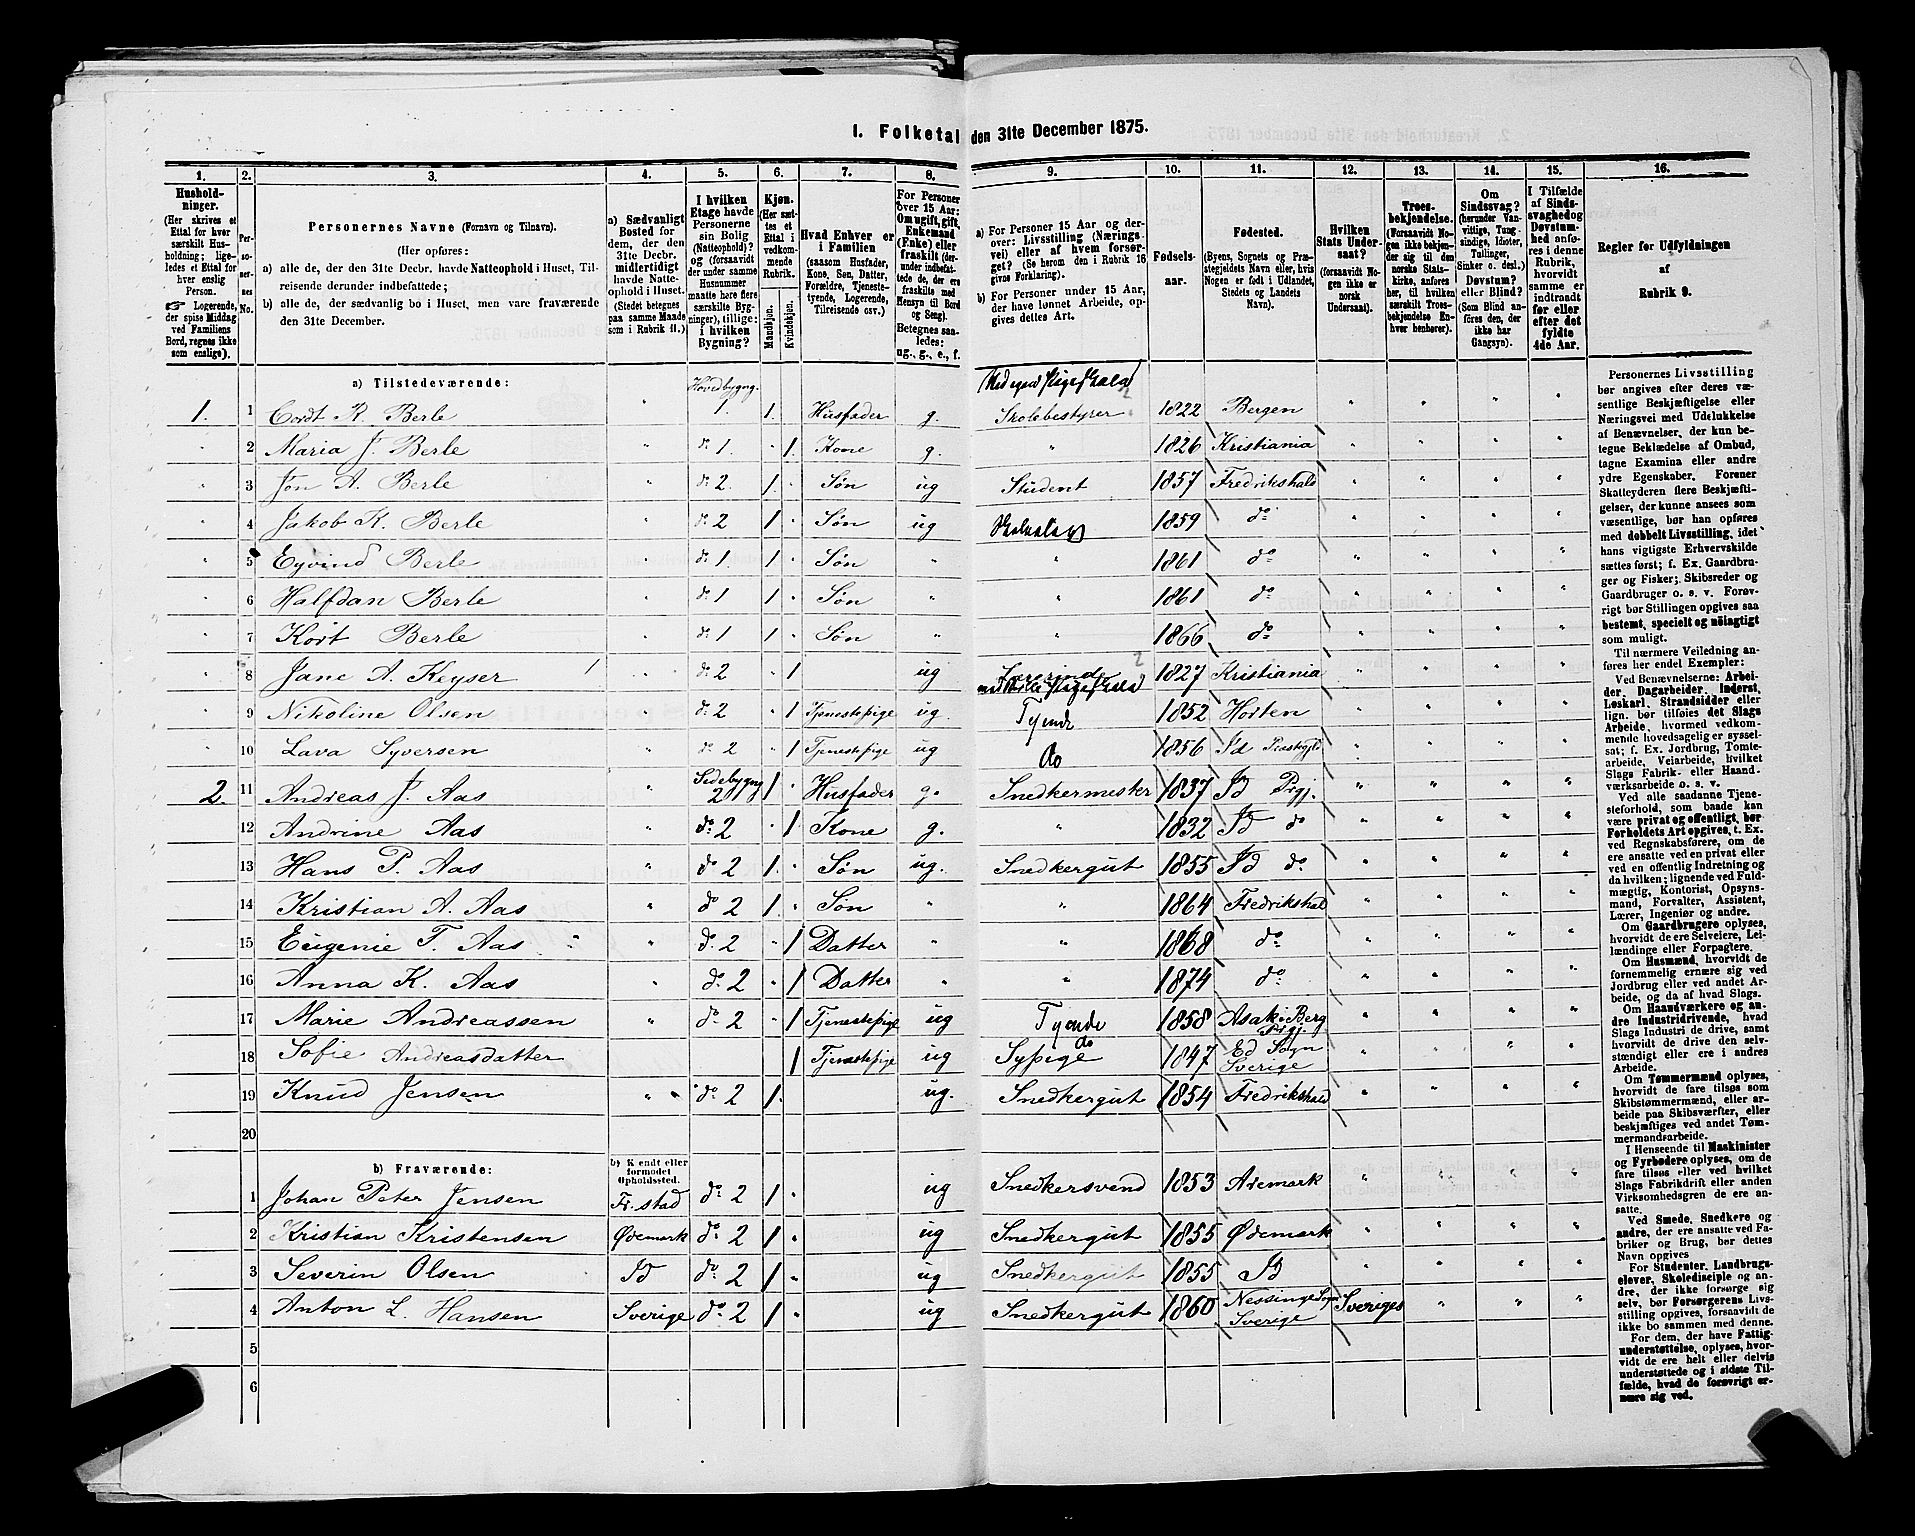 1. Folketal den 31te December 1875.
1. 2. 3. 4. 5. 6. 7. 8. 9. 10. 11. 12. 13. 14. 15. 16.
Husholdninger. (Her skrives et Ettal for hver særskilt Husholdning; ligeledes et Ettal for hver enslig Person. ☞ Logerende, der spise Middag ved Familiens Bord, regnes ikke som enslige).
Personernes No.
Personernes Navne (Fornavn og Tilnavn).
(Her opføres:
a) alle de, der den 31te Decbr. havde Natteophold i Huset, Tilreisende derunder indbefattede;
b) alle de, der sædvanlig bo i Huset, men vare fraværende den 31te December.
a) Sædvanligt Bosted for dem, der den 31te Decbr. midlertidigt havde Natteophold i Huset. (Stedet betegnes paa samme Maade som i Rubrik 11.)
I hvilken Etage havde Personerne sin Bolig (Natteophold)? og (forsaavidt der under samme Husnummer maatte høre flere særskilte Bygninger), tillige: I hvilken Bygning?
Kjøn. (Her sættes et Ettal i vedkommende Rubrik. Mandkjøn. Kvindekjøn.
Hvad Enhver er i Familien (saasom Husfader, Kone, Søn, Datter, Forældre, Tjenestetyende, Logerende, Tilreisende osv.)
For Personer over 15 Aar: Om ugift, gift, Enkemand (Enke) eller fraskilt (derunder indbefattede de, der ere fraskilte med Hensyn til Bord og Seng). Betegnes saaledes: ug., g., e., f.
a) For Personer 15 Aar og derover: Livsstilling (Næringsvei) eller af hvem forsørget? (Se herom den i Rubrik 16 givne Forklaring).
b) For Personer under 15 Aar, der have lønnet Arbeide, opgives dettes Art.
Fødselsaar.
Fødested. (Byens, Sognets og Præstegjeldets Navn eller, hvis Nogen er født i Udlandet, Stedets og Landets Navn).
Hvilken Stats Undersaat? (forsaavidt Nogen ikke er norsk Undersaat).
Troesbekjendelse. (Forsaavidt Nogen ikke bekjender sig til den norske Statskirke, anføres her, til hvilket særskilt Troesbekjendelse Enhver benhører).
Om Sindssvag? (herunder Vanvittige, Tungsindige, Idioter, Tullinger, Sinker o. desl.) Døvstum? eller Blind? (Som Blind anføres den, der ikke har Gangsyn).
I Tilfælde af Sindssvaghed og Døvstumhed anføres i denne Rubrik, hvorvidt samme er indtraadt før eller efter det fyldte 4de Aar.
Regler for Udfyldningen af Rubrik 9.
a) Tilstedeværende: Hovedbygng. Med egen Pigeskole
1. 1 Cordt R. Berle " 1. 1. Husfader g. Skolebestyrer 1822 Bergen " " " "
" 2 Maria J. Berle " do 1. " 1. Kone g. " 1826 Kristiania " " " "
" 3 Jon A. Berle " do 2. 1. " Søn ug Student 1857 Fredrikshald " " " "
" 4 Jakob K. Berle " do 2 1 " Søn ug 1859 do " " " "
" 5 Eyvind Berle " do 1 1 " Søn " " 1861 do " " " "
" 6 Halfdan Berle " do 1 1 " Søn " " 1861 do " " " "
" 7 Kort Berle " do 1 1 " Søn " " 1866 do " " " "
" 8 Jane A. Keyser " do 2 " 1 ug Lærerinde 1827 Kristiania " " " "
" 9 Nikoline Olsen " do 2 " 1 Tjenestepige ug. Tyende 1852 Horten " " " "
" 10 Lava Syversen " do 2 " 1 Tjenestepige ug do 1856 Id Præstegjld " " " "
2. 11 Andreas J. Aas " Sidebygng 2 1 Husfader g. Snedkermester 1837 Id Prgj. " " " "
12 Andrine Aas " do 2 " 1 Kone g. " 1832 Id do " " " "
13 Hans P. Aas " do 2 1. " Søn ug. Snedkergut 1855 Id do " " " "
14 Kristian A. Aas " do 2 1. " Søn " " 1864 Fredrikshal " " " "
15 Eugenie T. Aas " do 2 " 1 Datter " " 1868 do " " " "
16 Anna K. Aas " do 2 " 1 Datter " " 1874 do " " " "
17 Marie Andreassen " do 2 " 1 Tjenestepige ug Tyende 1858 Asak i Berg Prgj. " " " "
18 Sofie Andreasdatter 1 Tjenestepige ug Sypige do 1847 Ed Sogn Sverige " " "
19 Knud Jensen " do 2 1. ug. Snedkergut 1854 Fredrikshald " " " "
20
b) Fraværende: b) Kendt eller formodet Opholdssted.
1 Johan Peter Jensen Fr.stad do 2 1 " ug Snedkersvend 1853 Aremark " " " "
2 Kristian Kristensen Ødemark do 2 1 " ug Snedkergut 1855 Ødemark " " " "
3 Severin Olsen Id do 2 1 " ug Snedkergut 1855 Id " " " "
4 Anton L. Hansen Sverige do 2 1 " ug Snedkergut 1860 Nessinge Sogn Sverige Sveriges " " "
5
6
Personernes Livsstilling
bør angives efter deres væsentlige
Beskjæftigelse eller
Næringsvei med Udelukkelse
af Benævnelser, der kun betegne
Beklædelse af Ombud,
tagne Examina eller andre
ydre Egenskaber. Forener
Skatteyderen flere Beskjæftigelser,
der kunne ansees som
væsentlige, bør han opføres
med dobbelt Livsstilling, idet
hans vigtigste Erhvervskilde
sættes først; f. Ex. Gaardbruger
og Fisker; Skibsreder og
Gaardbruger o. s. v. Forøvrigt
bør Stillingen opgives saa
bestemt, specielt og nøiagtigt
som muligt.
Til nærmere Veiledning anføres
her endel Exempler:
Ved Benævnelserne: Arbeider,
Dagarbeider, Inderst,
Løskarl, Strandsidder eller
lign. bør tilføies det Slags
Arbeide, hvormed vedkommende
hovedsagelig er sysselsat;
f. Ex. Jordbrug, Tomtearbeide,
Veiarbeide, hvilket
Slags Fabrik- eller Haandværksarbeide
o. s. v.
Ved alle saadanne Tjenesteforhold,
som baade kan
være privat og offentligt, bør
Forholdets Art opgives, t. Ex.
ved Regnskabsførere, om de
ere ansatte ved en privat eller
ved en offentlig Indretning og
da hvilken; lignende ved Fuldmægtig,
Kontorist, Opsynsmand,
Forvalter, Assistent,
Lærer, Ingeniør og andre.
Om Gaardbrugere oplyses,
hvorvidt de ere Selveiere, Leilændinge
eller Forpagtere.
Om Husmænd, hvorvidt de
fornemmelig ernære sig ved
Jordbrug eller ved andet Arbeide,
og da af hvad Slags.
Om Haandværkere og andre
Industridrivende, hvad
Slags Industri de drive, samt
hvorvidt de drive den selvstændigt
eller ere i andres
Arbeide.
Om Tømmermænd oplyses,
hvorvidt de fare tilsøs som
Skibstømmermænd, eller arbeide
paa Skibsværfter, eller
beskjæftiges ved andet Tømmermandsarbeide.
I Henseende til Maskinister
og Fyrbødere oplyses, om de
fare tilsøs eller ved hvilket
Slags Fabrikdrift eller anden
Virksomhedsgren de ere ansatte.
Ved Smede, Snedkere og
andre, der ere ansatte ved Fabriker
og Brug, bør dettes
Navn opgives
For Studenter, Landbrugselever,
Skoledisciple og andre,
der ikke forsørge sig
selv, bør Forsørgerens Livsstilling
opgives, forsaavidt de
ikke bo sammen med denne.
For dem, der have Fattigunderstøttelse,
oplyses, hvorvidt
de ere helt eller delvis
understøttede og i sidste Tilfælde,
hvad de forøvrigt ernære
sig ved.